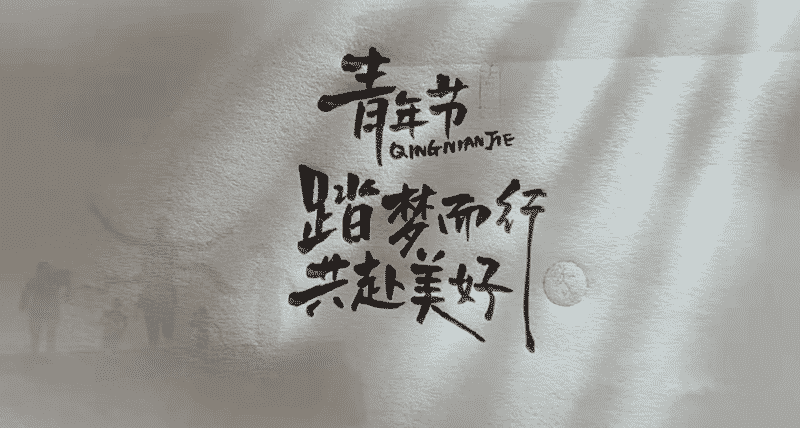 青年节
QINGNIANJIE
踏梦而行
共赴美好